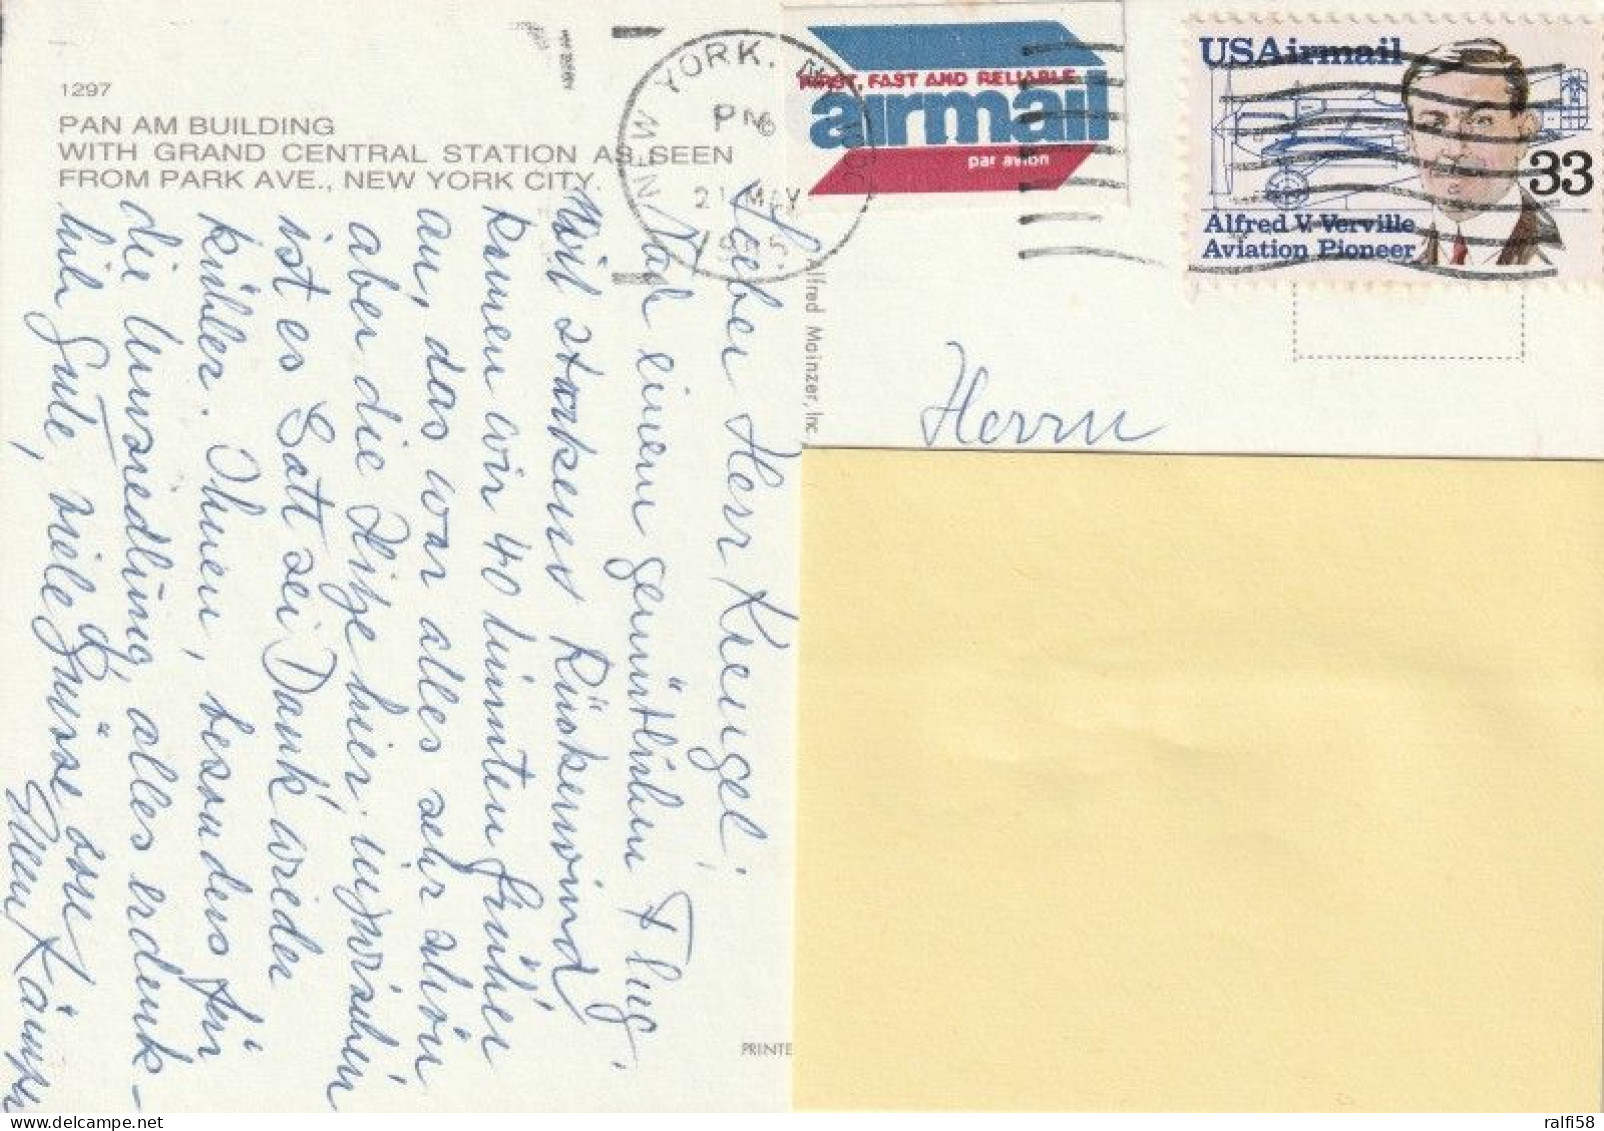 1297
PAN AM BUILDING
WITH GRAND CENTRAL STATION AS SEEN
FROM PARK AVE., NEW YORK CITY.
NEW YORK, N.Y.
PM
21 MAY
1985
FIRST, FAST AND RELIABLE
airmail
par avion
USAirmail
33
Alfred V. Verville
Aviation Pioneer
Alfred Mainzer, Inc.
Herrn
Lieber Herr Kreugel,
Nach einem gemütlichen Flug,
Mit starkem Rückenwind
kamen wir 40 Minuten früher
an, das war alles sehr schön
aber die Hitze hier, inzwischen
ist es Gott sei Dank wieder
kühler. Ihnen, besonders für
die Umsiedlung, alles erdenk-
lich Gute, viele Grüsse von
Ellen
PRINTE
ralfi58